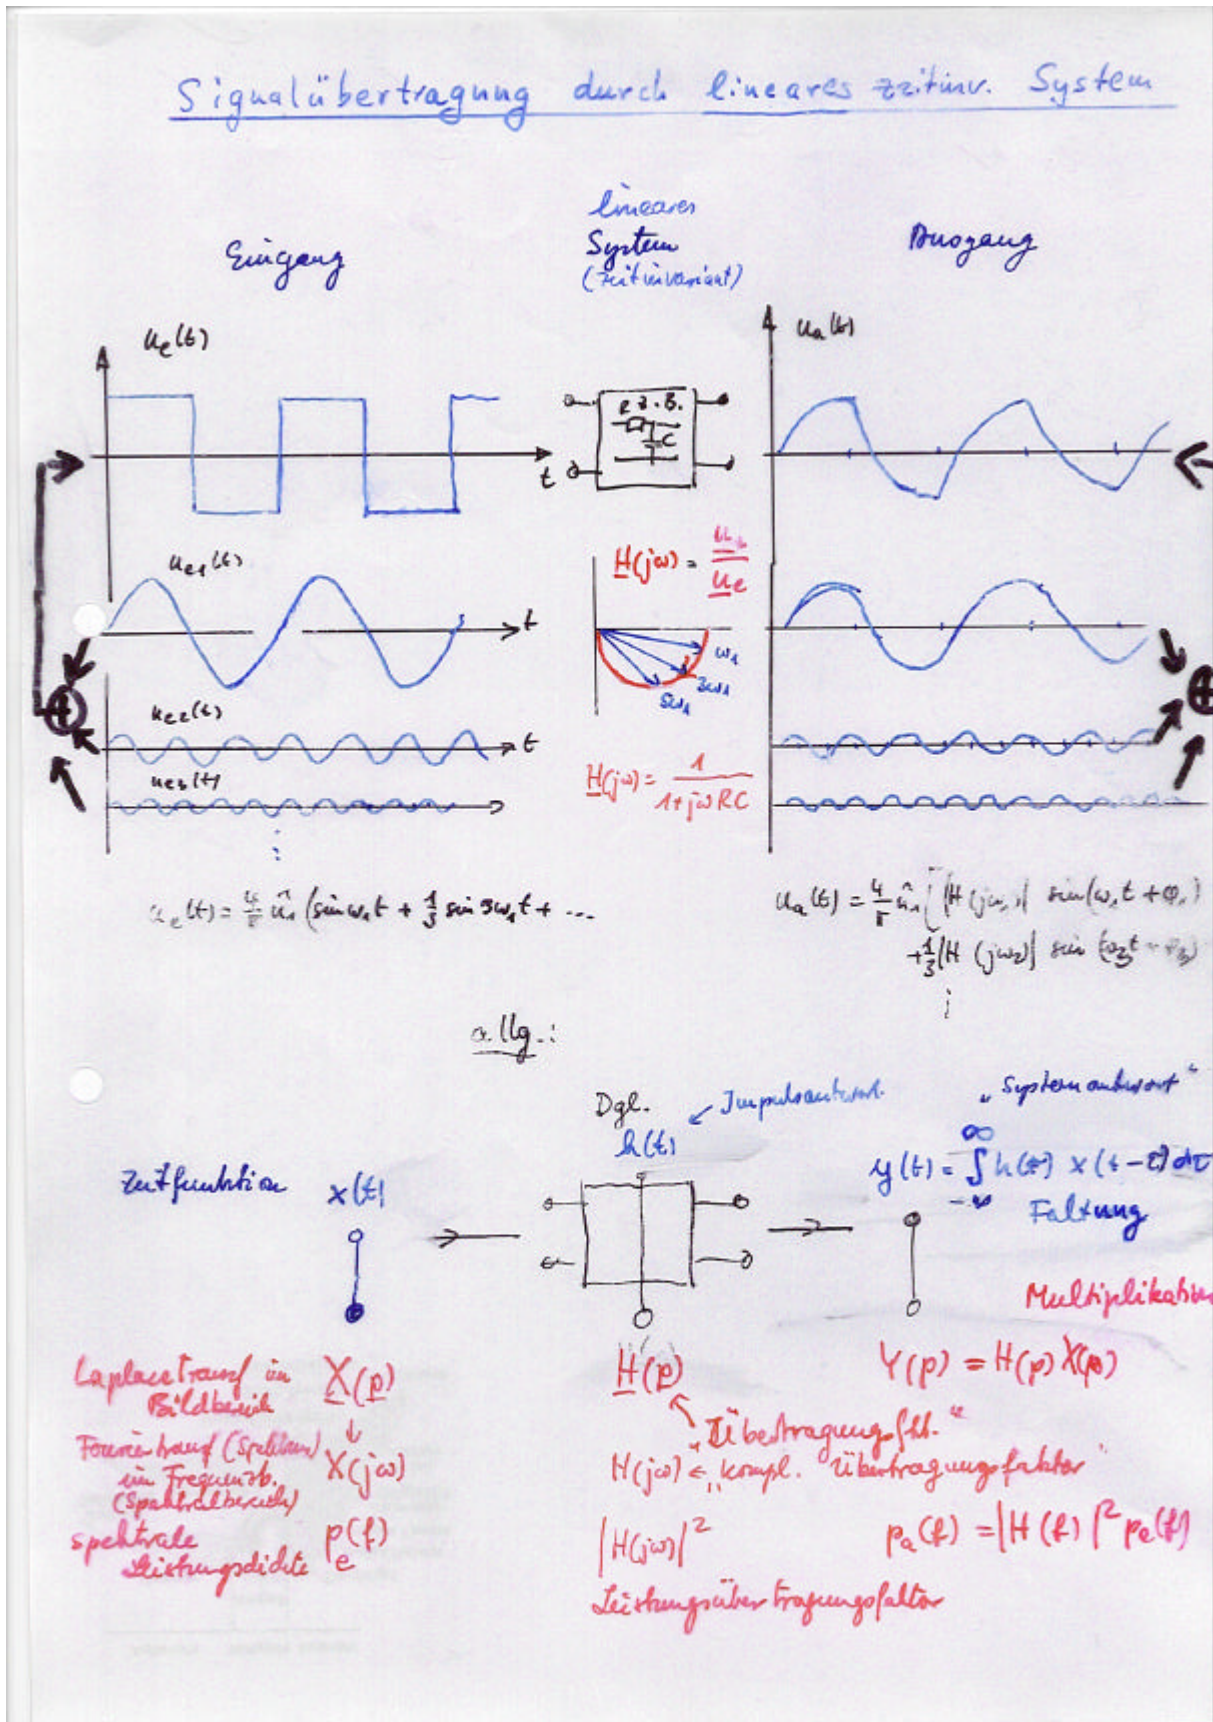 Signalübertragung durch lineares zeitinv. System
lineares
System
(zeitinvariant)
Eingang
Ausgang
u_e(t)
u_a(t)
R z.B.
C
t
u_e1(t)
H(jω) =
u_e
t
ω₁
3ω₁
5ω₁
u_e2(t)
t
u_e3(t)
H(jω) = 1/(1+jωRC)
u_e(t) = 4/π û₁ (sin ω₁t + 1/3 sin 3ω₁t + ...
u_a(t) = 4/π û₁ [ |H(jω₁)| sin(ω₁t + φ₁)
+ 1/3 |H(jω₂)| sin
allg.:
Dgl.
Impulsantwort.
„Systemantwort"
h(t)
Zeitfunktion x(t)
y(t) = ∫_{-∞}^{∞} h(τ) x(t-τ) dτ
Faltung
Multiplikation
Laplacetransf im
Bildbereich
X(p)
H(p)
Y(p) = H(p) X(p)
„Übertragungsfkt."
Fouriertransf (Spektrum)
im Frequenzb.
(Spektralbereich)
X(jω)
H(jω) ← „kompl. Übertragungsfaktor"
spektrale
Leistungsdichte
p_e(f)
|H(jω)|²
p_a(f) = |H(f)|² p_e(f)
Leistungsübertragungsfaktor